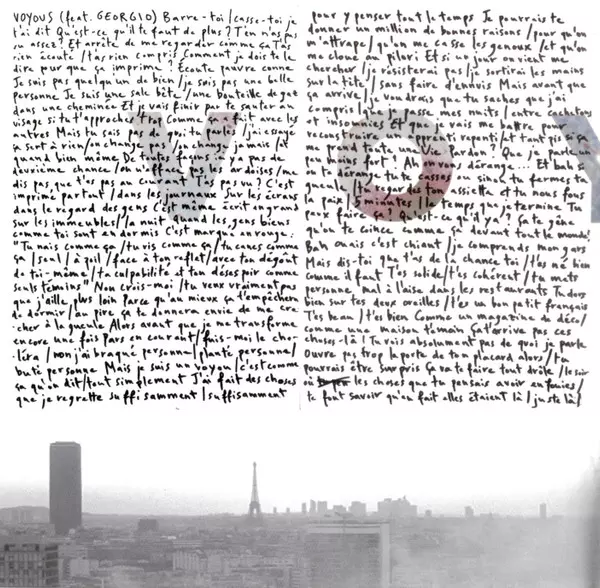 VOYOUS (feat. GEORGIO) Barre-toi/casse-toi je
t'ai dit Qu'est-ce qu'il te faut de plus? T'en n'as pas
vu assez? Et arrête de me regarder comme ça T'as
rien écouté/t'as rien compris Comment je dois te le
dire pour que ça imprime? Écoute pauvre conne
Je suis pas quelqu'un de bien/je suis pas une belle
personne Je suis une sale bête/une bouteille de gaz
dans une cheminée Et je vais finir par te sauter au
visage si tu t'approches trop Comme j'ai fait avec les
autres Mais tu sais pas de quoi tu parles/j'ai essayé
ça sert à rien/on change pas/on change jamais/et
quand bien même De toutes façons il y a pas de
deuxième chance/on n'efface pas les ardoises/me
dis pas que t'es pas au courant T'as pas vu? C'est
imprimé partout/dans les journaux Sur les écrans
dans le regard des gens C'est même écrit en grand
sur les immeubles/la nuit quand les gens biens
comme toi sont endormis C'est marqué en rouge:
"Tu nais comme ça/tu vis comme ça/tu canes comme
ça/seul/à poil/face à ton reflet/avec ton dégoût
de toi-même/ta culpabilité et ton désespoir comme
seuls témoins" Non crois-moi/tu veux vraiment pas
que j'aille plus loin Parce qu'au mieux ça t'empêchera
de dormir/au pire ça te donnera envie de me cra-
cher à la gueule Alors avant que je me transforme
encore une fois Pars en courant/fuis-moi le cho-
léra/non j'ai braqué personne/planté personne/
buté personne Mais je suis un voyou/c'est comme
ça qu'on dit/tout simplement J'ai fait des choses
que je regrette suffisamment/suffisamment
pour y penser tout le temps Je pourrais te
donner un million de bonnes raisons/pour qu'on
m'attrape/qu'on me casse les genoux/et qu'on
me cloue au pilori Et si un jour on vient me
chercher/je résisterai pas/je sortirai les mains
sur la tête/sans faire d'ennuis Mais avant que
ça arrive/je voudrais que tu saches que j'ai
compris/que je passe mes nuits/entre cachetons
et insomnies Et que je vais me battre pour
reconstruire un repenti repenti/et tant pis si ça
me prend toute une vie Pardon? Que je parle un
peu moins fort? Ah on vous dérange... Et bah si
on te dérange tu te casses ou sinon tu fermes ta
gueule/tu regardes ton assiette et tu nous fous
la paix/5 minutes/le temps que je termine Tu
peux faire ça? Qu'est-ce qu'il y a? Ça te gêne
qu'on te coince comme ça devant tout le monde?
Bah ouais c'est chiant/je comprends mon gars
Mais dis-toi que t'as de la chance toi/t'es né bien
comme il faut T'es solide/t'es cohérent/tu mets
personne mal à l'aise dans les restaurants Tu dors
bien sur tes deux oreilles/t'es un bon petit français
T'es beau/t'es bien Comme un magazine de déco/
comme une maison témoin Ça t'arrive pas ces
choses-là! Tu vois absolument pas de quoi je parle
Ouvre pas trop la porte de ton placard alors/tu
pourrais être surpris Ça va te faire tout drôle/le soir
où les choses que tu pensais avoir enfouies/
te font savoir qu'en fait elles étaient là/juste là/